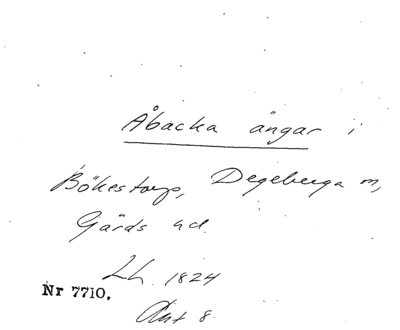 Åbacka ängar i
Bökestorp, Degeberga m,
Gärds hd.
Lh. 1824
Nr 7710.
Akt 8.